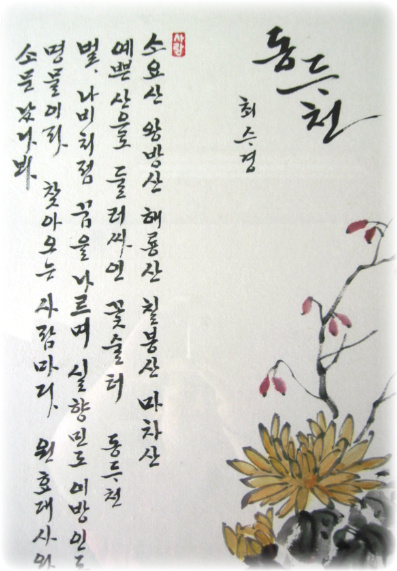 동두천
최수경
사랑
소요산 왕방산 해룡산 칠봉산 마차산
예쁜 산으로 둘러싸인 꽃술터 동두천
벌, 나비처럼 꿈을 나르며 실향민도 이방인도
명물이라. 찾아오는 사람마다. 원효대사와
소문 났나봐.